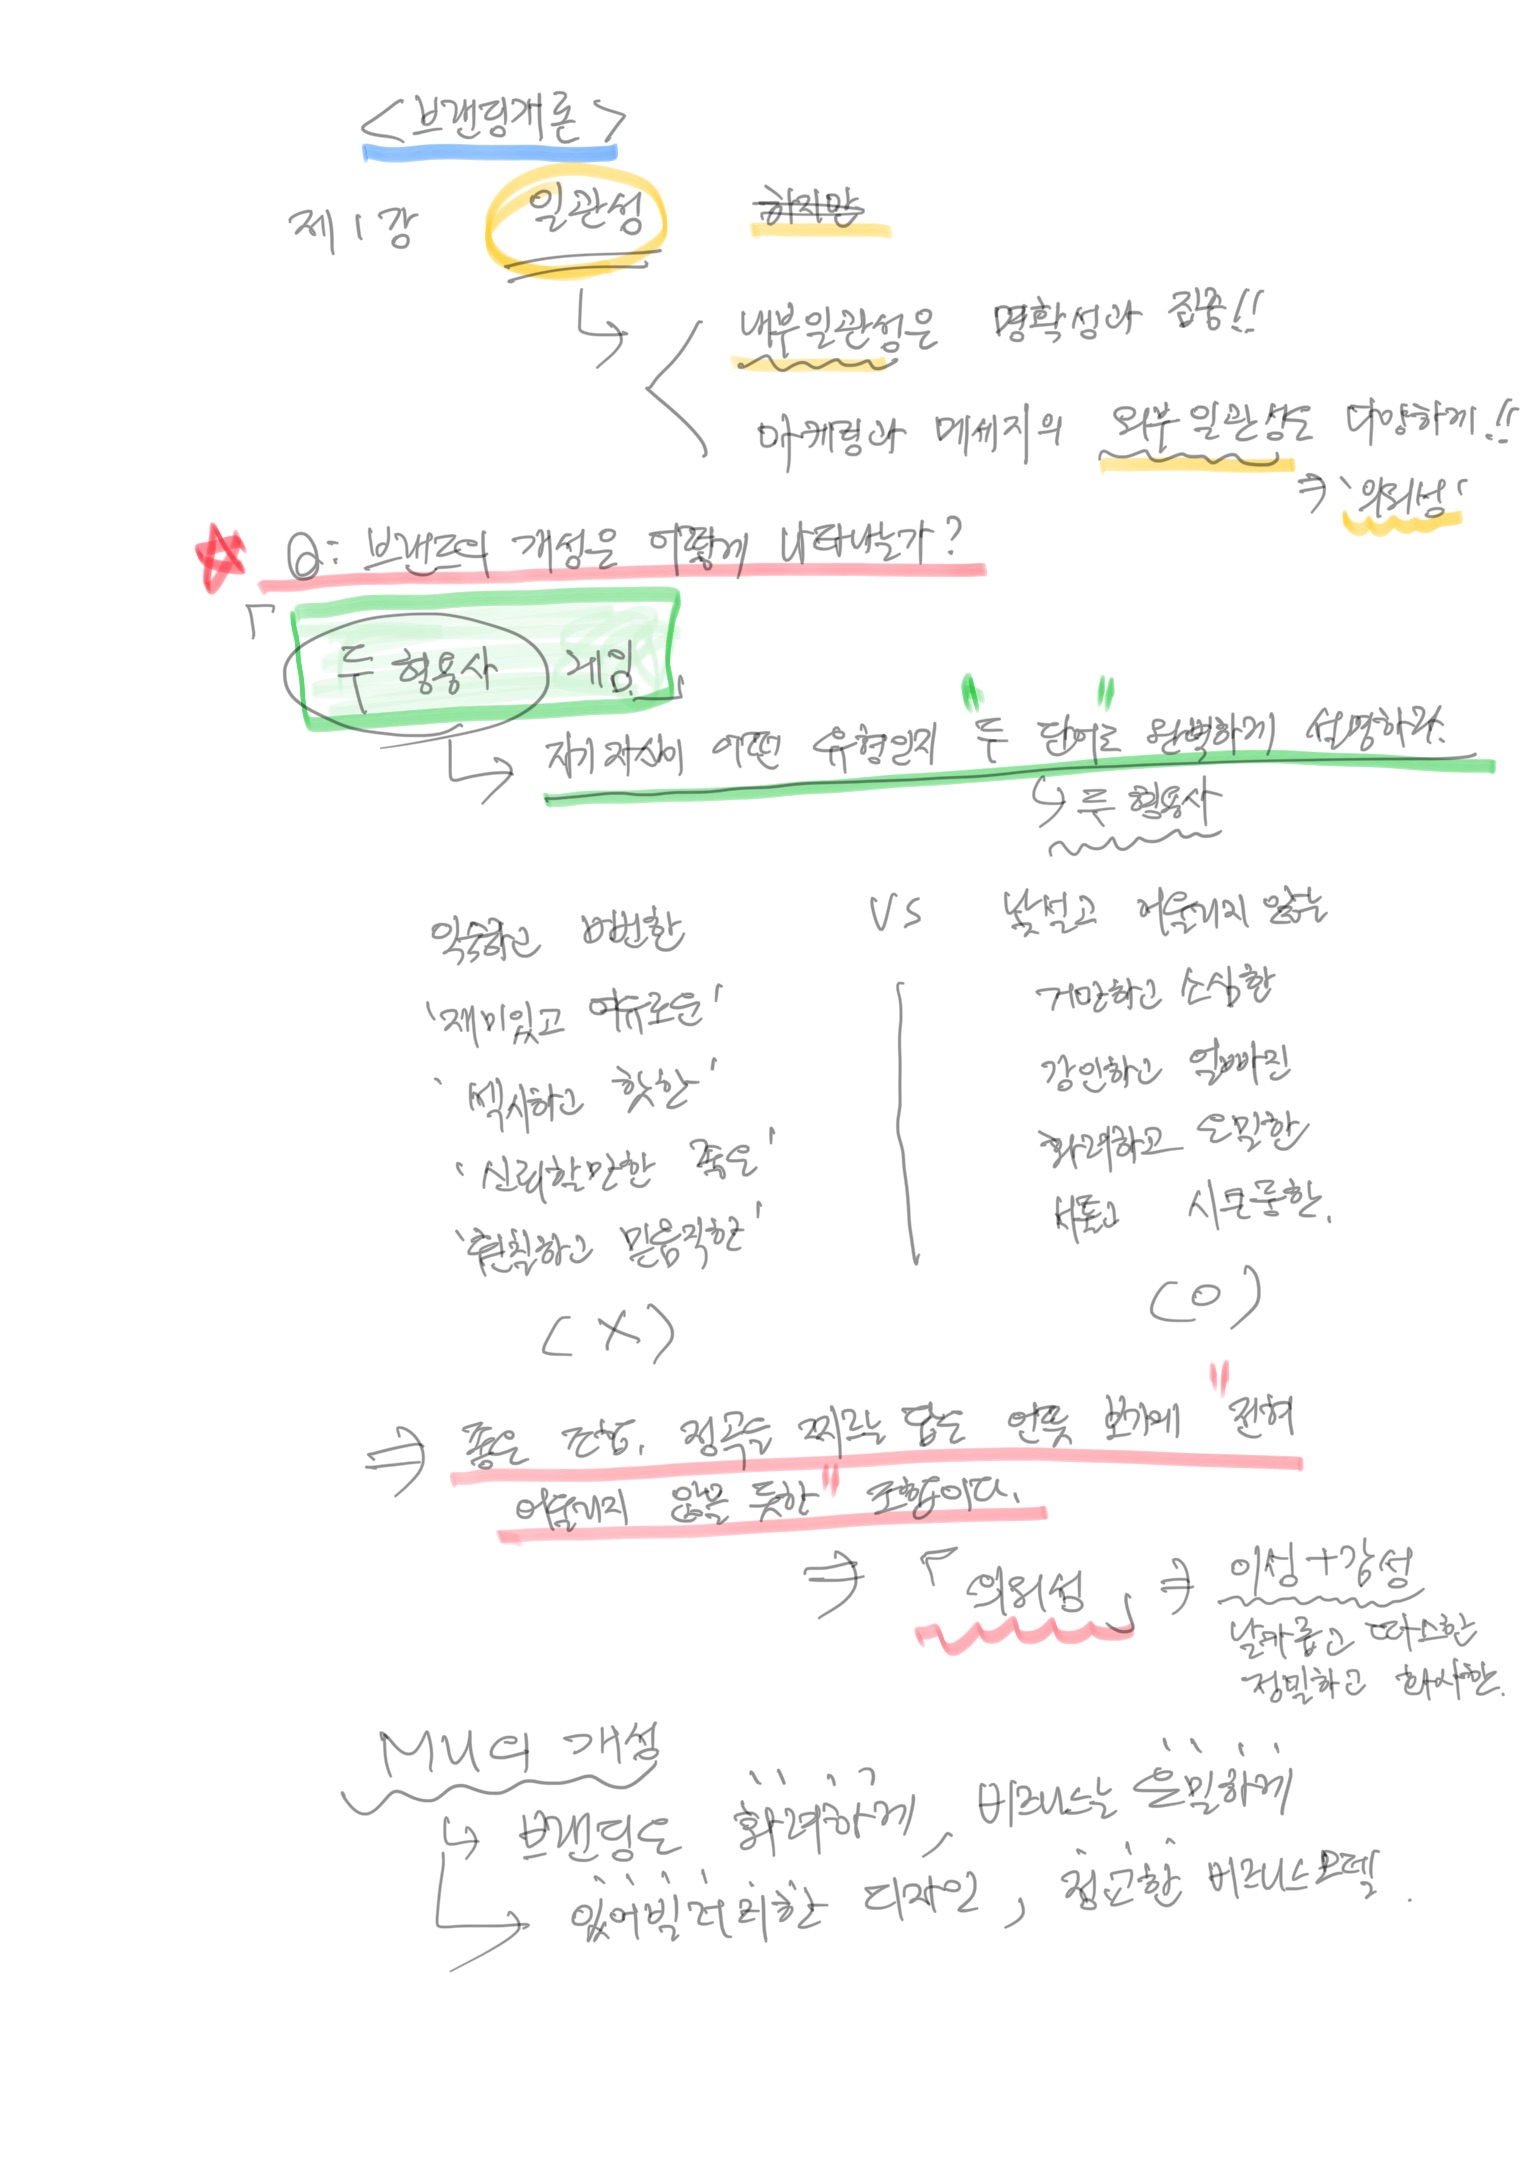 <브랜딩개론>
제1강 일관성 하지만
내부일관성은 명확성과 집중!!
마케팅과 메세지의 외부일관성은 다양하게!!
⇒ '의외성'
Q: 브랜드의 개성은 어떻게 나타내는가?
「두 형용사 게임」
자기 자신이 어떤 유형인지 "두 단어"로 완벽하게 설명하라.
↳ 두 형용사
익숙하고 뻔한 VS 낯설고 어울리지 않는
'재미있고 여유로운' 거만하고 소심한
'섹시하고 핫한' 강인하고 얼빠진
'신뢰할만한 죽은' 화려하고 은밀한
'훤칠하고 믿음직한' 서툴고 시큰둥한.
(X) (O)
⇒ 좋은 조합, 정곡을 찌르는 답은 언뜻 보기에 "전혀
어울리지 않을 듯한" 조합이다.
⇒ 『의외성』 ⇒ 이성+감성
날카롭고 따스한
정밀하고 화사한.
MU의 개성
↳ 브랜딩은 화려하게, 비즈니스는 은밀하게
있어빌러티한 디자인, 정교한 비즈니스모델.